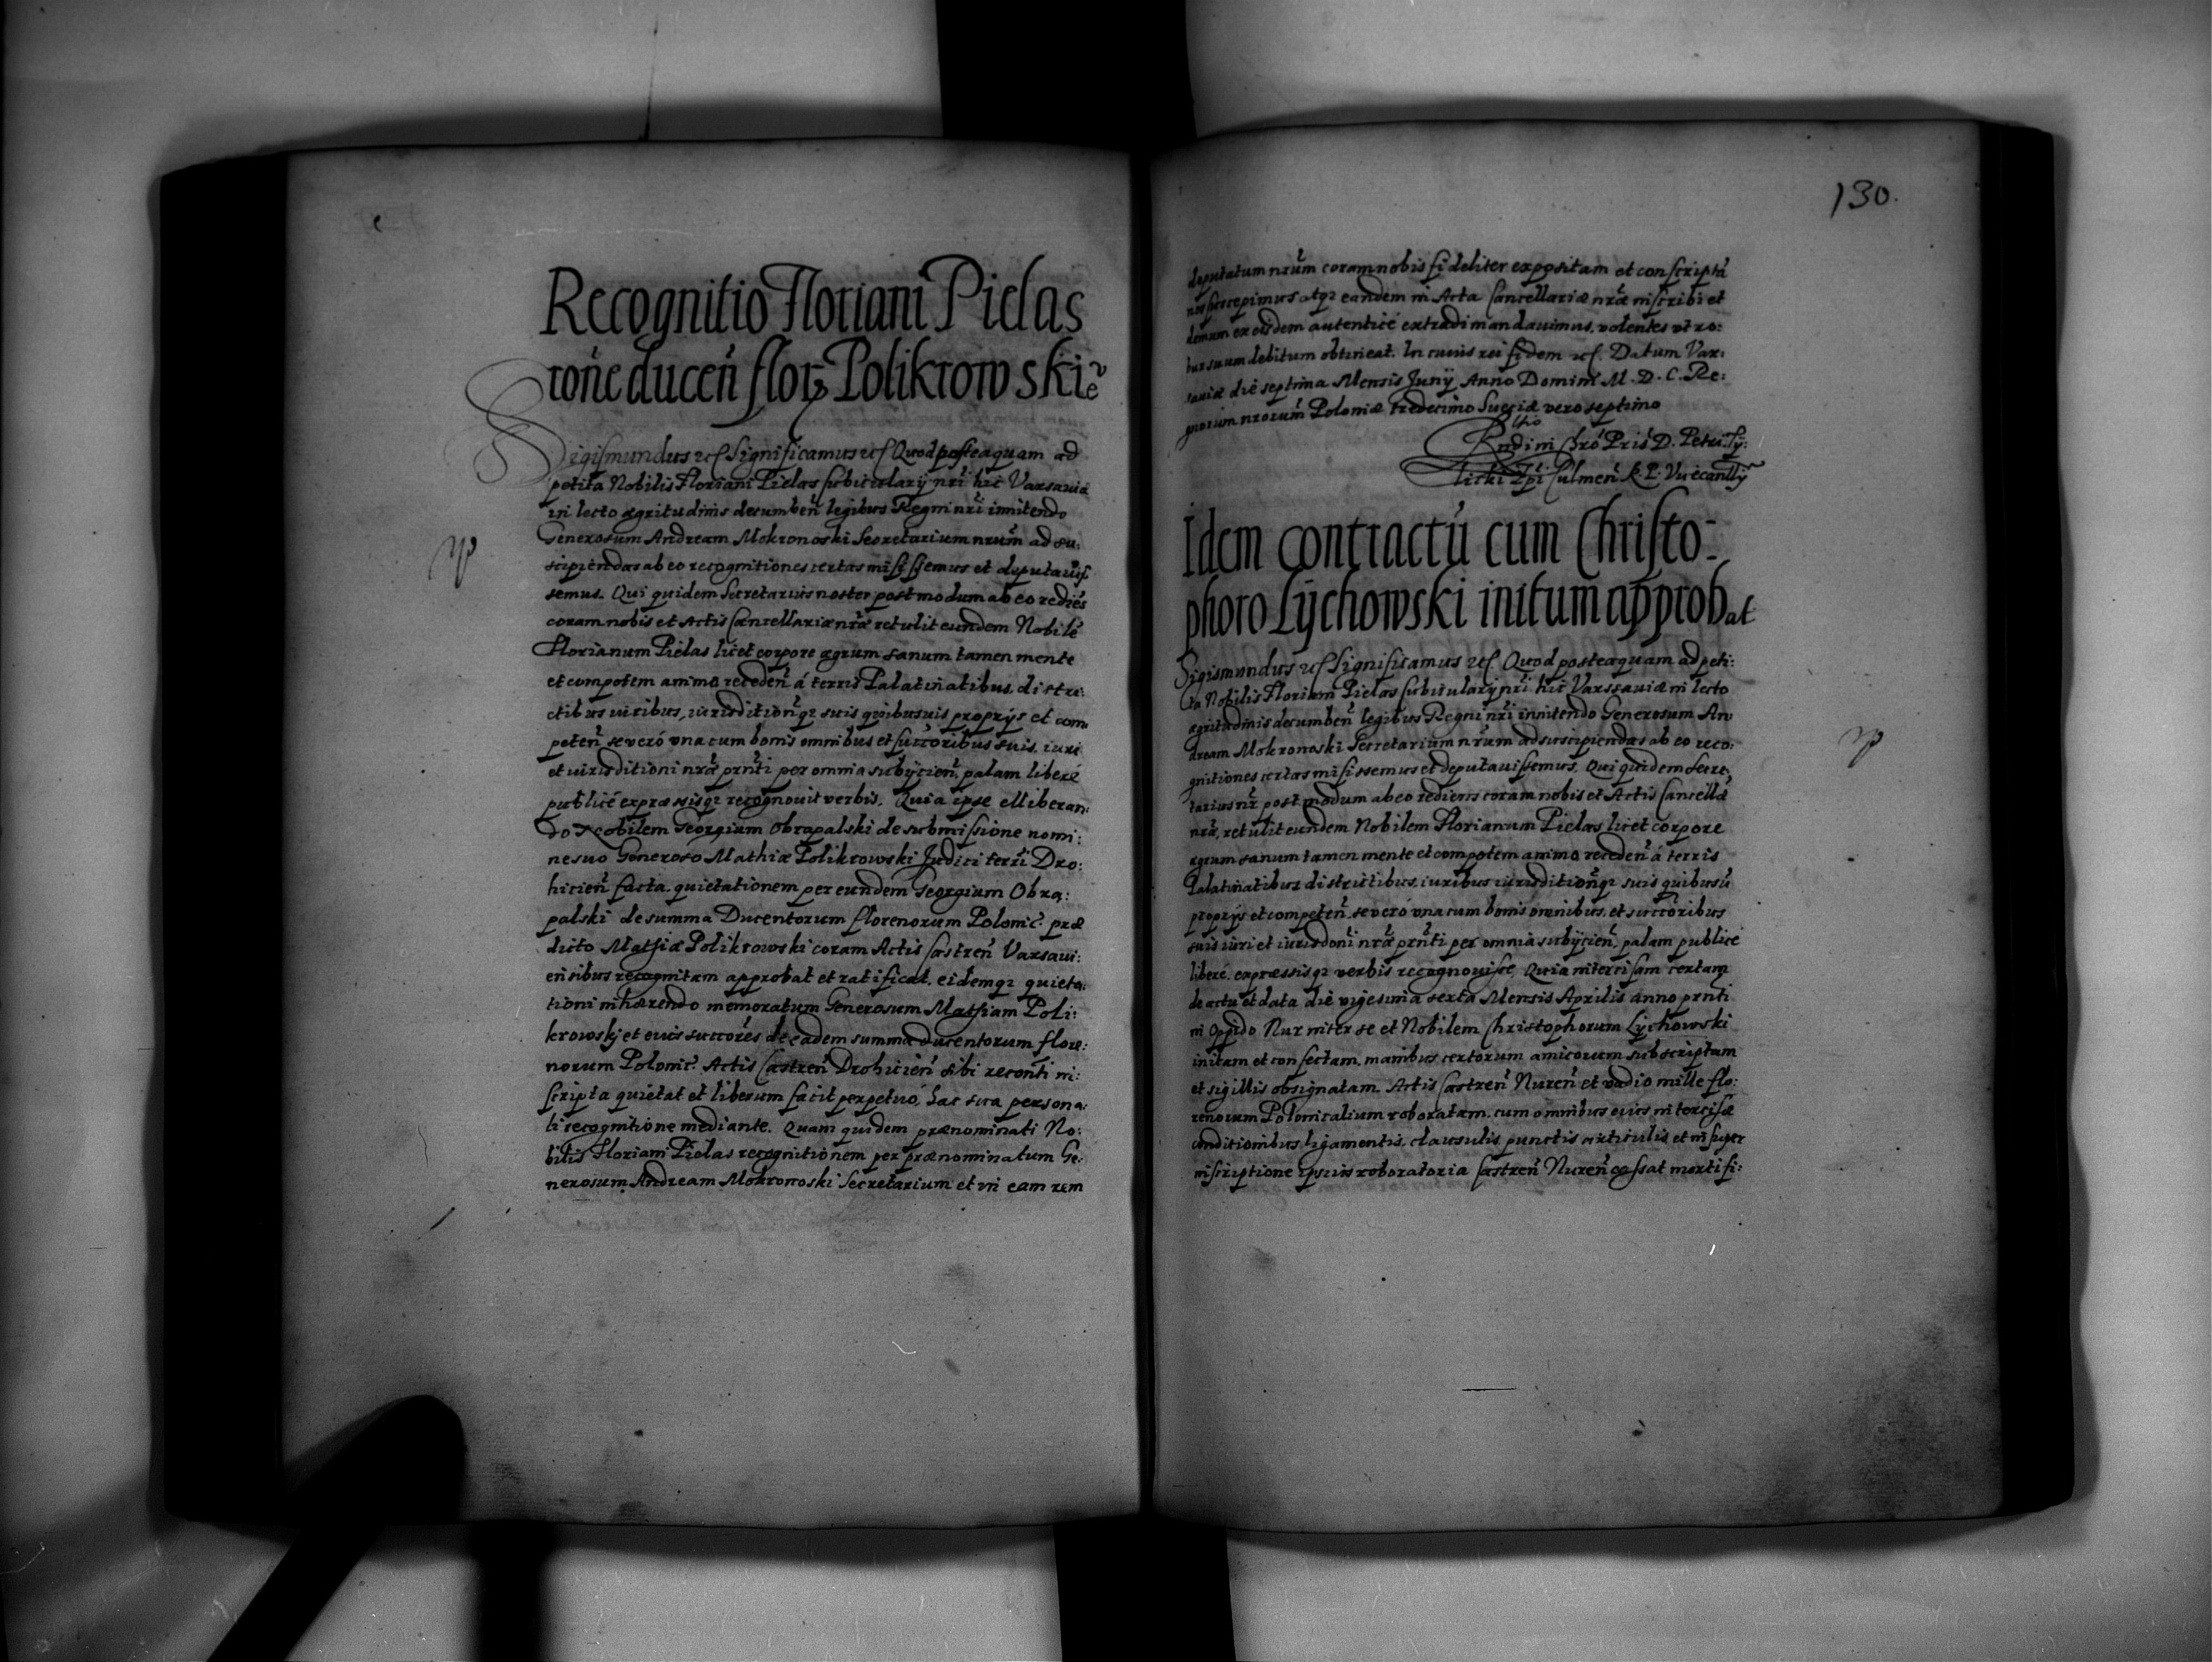 Recognitio Floriani Pielas
rõne ducen̄ flor Polikrowskie
Sigismundus etc Significamus etc Quod posteaquam ad
petita Nobilis Floriani Pielas subicularij nr̃i hic Varsavia
in lecto ægritudinis decumben̄ legibus Regni nr̃i innitendo
Generosum Andream Mokronoski Secretarium nrum̃ ad su:
scipiendas ab eo recognitiones certas misissemus et deputavis
semus. Qui quidem Secretarius noster postmodum ab eo rediẽs
coram nobis et Actis Cancellariæ nræ̃ retulit eundem Nobilẽ
Florianum Pielas licet corpore ægrum sanum tamen mente
et compotem animo receden̄ á terris Palatinatibus distri:
ctibus iuribus, iurisdition̄q3 suis quibusuis proprijs et com
peten̄ se veró vna cum bonis omnibus et succ̃oribus suis, iuri
et iurisditioni nræ̃ prñti per omnia subijcien̄, palam liberé
publicé expressisq3 recognouit verbis. Quia ipse elliberan:
do Nobilem Georgium Obrapalski de submissione nomi:
ne suo Generoso Mathiæ Polikrowski Judici terrĩ Dro:
hicien̄ facta. quietationem per eundem Georgium Obra:
palski de summa Ducentorum florenorum Polonic̃. præ
dicto Mathiæ Polikrowski coram Actis Castren̄ Varsaui:
ensibus recognitam approbat et ratificat. eidemq3 quieta:
tioni inhærendo memoratum Generosum Mathiam Poli:
krowskj et euis succorẽs de eadem summa Ducentorum flore:
norum Polonic̃. Actis Castren̄ Drohicien̄ sibi reconti in:
scripta quietat et liberum facit perpetuó, hac sua persona:
li recognitione mediante. Quam quidem prænominati No:
bilis Floriani Pielas recognitionem per prænominatum Ge:
nerosum Andream Mokronoski Secretarium et in eam rem
130.
deputatum nrum̃ coram nobis fideliter expositam et conscriptã
nos suscepimus atq3 eandem in Acta Cancellariæ nræ̃ inscribi et
demum ex eisdem autenticé extradi mandauimus, volentes vt ro:
bur suum debitum obtineat. In cuius rei fidem etc. Datum Var:
sauiæ die septima Mensis Junij Anno Domini M.D.C. Re:
gnorum nrorum̃ Poloniæ tredecimo Sueciæ vero septimo
Rndi in Chrõ Pris̃ D. Petri Ty:
licki Ep̃i Culmen̄ R.P. Vicecanllij
Idem contractũ cum Christo-
phoro Lychowski initum approbat
Sigismundus etc Significamus etc. Quod posteaquam ad peti:
ta Nobilis Floriani Pielas subicularij nr̃i hic Varssauiæ in lecto
ægritudinis decumben̄ legibus Regni nr̃i innitendo Generosum An
dream Mokronoski Secretarium nrũm ad suscipiendas ab eo reco:
gnitiones certas misissemus et deputauissemus. Qui quidem secre:
tarius nr̃ postmodum ab eo rediens coram nobis et Actis Cancellã
nræ̃, retulit eundem Nobilem Florianum Pielas licet corpore
ægrum sanum tamen mente et compotem animo receden̄ á terris
Palatinatibus districtibus, iuribus iurisdition̄q3 suis quibusũ
proprijs et competen̄. se veró vna cum bonis omnibus, et succ̃oribus
suis iuri et iurisdonĩ nræ̃ prñti per omnia subijcien̄, palam publicé
liberé. expressisq3 verbis recognouisse. Quia intercisam certam
de actu et data die vigesima sexta Mensis Aprilis anno prñti
in Oppido Nur inter se et Nobilem Christophorum Lychowski
initam et confectam. manibus certorum amicorum subscriptam
et sigillis obsignatam. Actis Castren̄ Nuren̄ et vadio mille flo:
renorum Polonicalium roboratam. cum omnibus euics intercisæ
conditionibus, ligamentis, clausulis, punctis articulis et in super
inscriptione ipsius roboratoria Castren̄ Nuren̄ cassat mortifi: